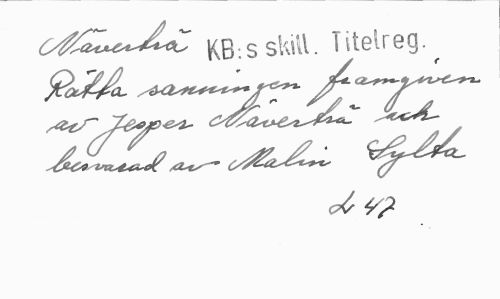 Näverträ KB:s skill. Titelreg.
Rätta sanningen framgiven
av Jesper Näverträ och
besvarad av Malin Sylta
L 47